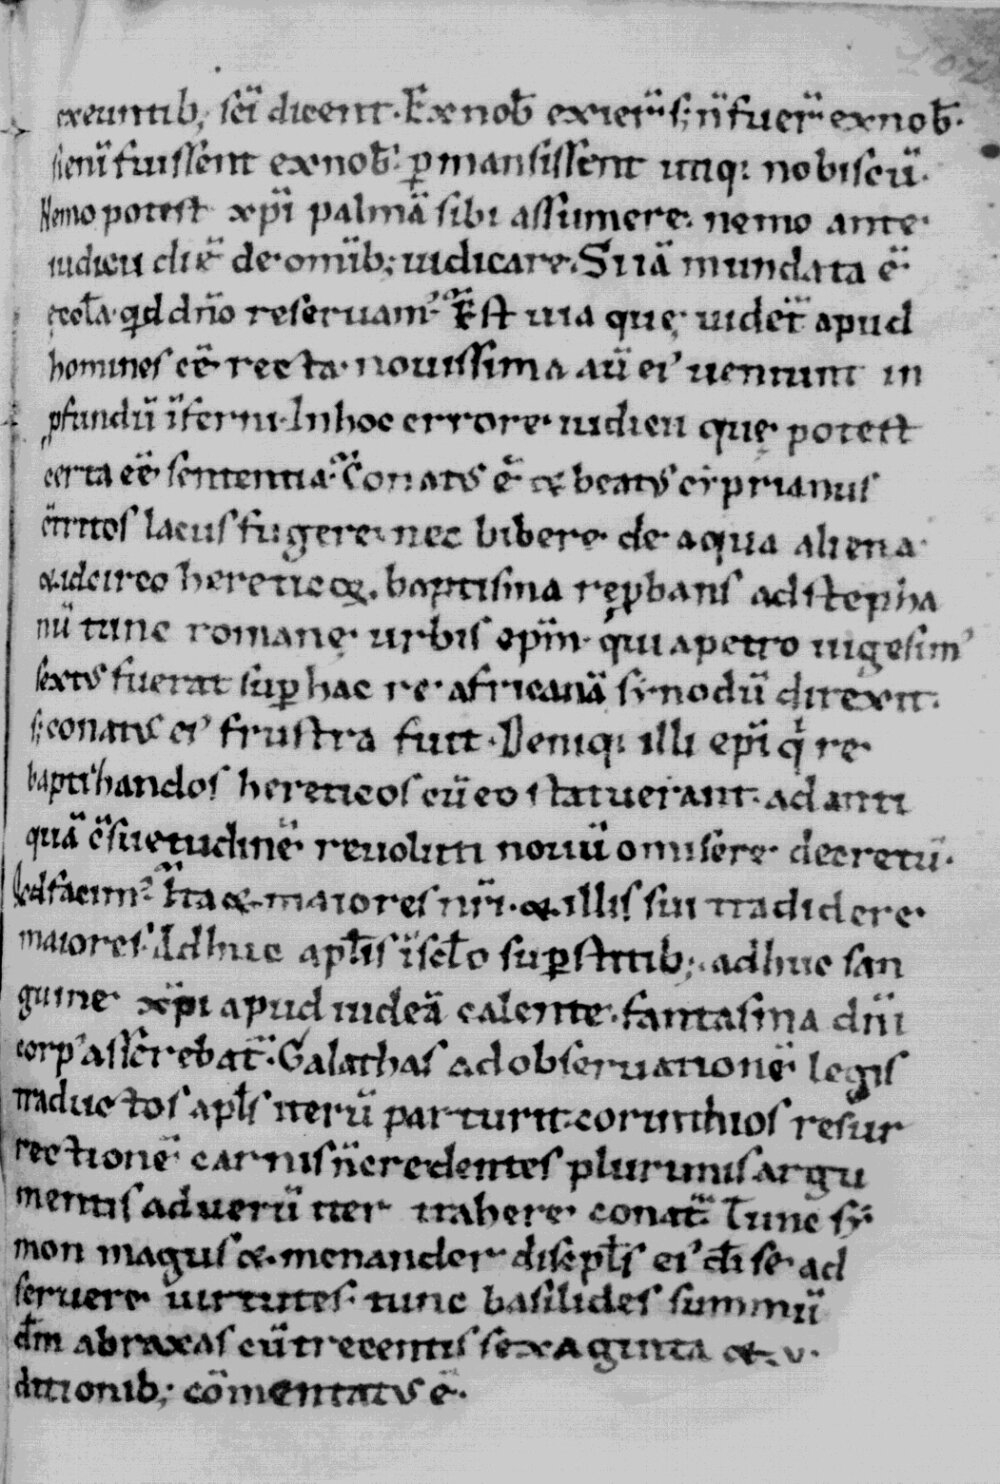 exeuntib; sc̄i dicent. Ex nob̄ exier̄ s; n̄ fuer̄ ex nob̄.
si eni fuissent ex nob̄. ꝑmansissent utiq; nobiscū.
Nemo potest xp̄i palmā sibi assumere. nemo ante
iudicii diē de omib; iudicare. Si iā mundata ē
ęccl̄a. qd dn̄o reseruam᾽? Est uia que uidet᷑ apud
homines eē recta. nouissima aū ei᾽ ueniunt in
ꝓfundū īferni. In hoc errore iudicii quę potest
certa eē sententia? Conatus ē & beatus ciprianus
ctritos lacus fugere. nec bibere de aqua aliena.
& idcirco hereticoꝝ baptisma reꝓbans ad stepha
nū tunc romanę urbis epm̄. qui a petro uigesim᾽
sextus fuerat suꝑ hac re africanā sinodū direxit.
s; conatus ei᾽ frustra fuit. Deniq; illi epi q̇ re
baptizandos hereticos cū eo statuerant. ad anti
quā c̄suetudinē reuoluti nouū omisere decretū.
Qd facim᾽? Ita & maiores nr̄i. & illis sui tradidere
maiores. Adhuc apl̄is ī scl̄o suꝑstitib;. adhuc san
guine xp̄i apud iudeā calente. fantasma dn̄i
corp᾽ asserebat᷑. Galathas ad obseruationē legis
traductos apl̄s iterū parturit. corinthios resur
rectionē carnis n̄ credentes plurimis argu
mentis ad uerū iter trahere conat᷑. Tunc sy
mon magus & menander discipl̄s ei᾽ dī se ad
seruere uirtutes. tunc basilides summū
dm̄ abraxas cū trecentis sexaginta & v.
ditionib; cōmentatus ē.